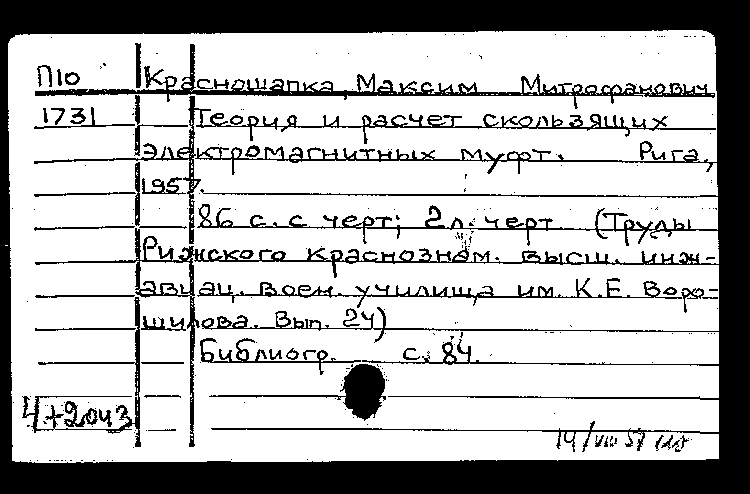 П10 Красношапка, Максим Митрофанович
1731 Теория и расчет скользящих
электромагнитных муфт. Рига,
1957.
86 с. с черт; 2 л. черт (Труды
Рижского краснознам. высш. инж-
авиац. воен. училища им. К.Е. Воро-
шилова. Вып. 24)
Библиогр. с. 84.
4+2043
14/VIII 57